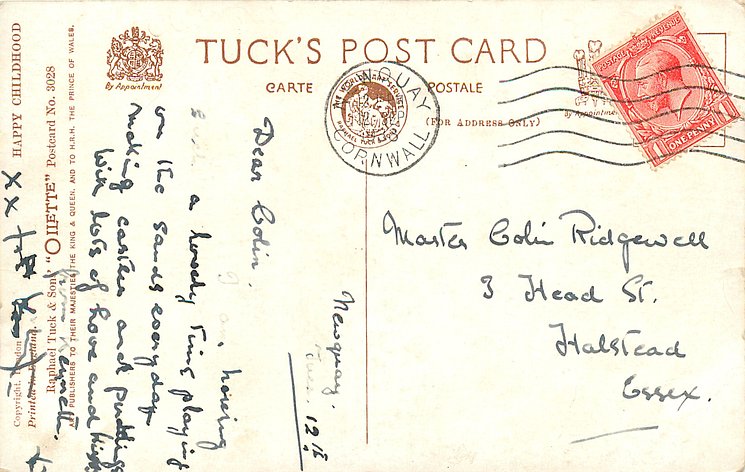 TUCK'S POST CARD
CARTE POSTALE
(FOR ADDRESS ONLY)
By Appointment
By Appointment
NQUAY
CORNWALL
POSTAGE REVENUE
1 ONE PENNY 1
HAPPY CHILDHOOD
Raphael Tuck & Sons' "OILETTE" Postcard No. 3028
ART PUBLISHERS TO THEIR MAJESTIES THE KING & QUEEN, AND TO H.R.H. THE PRINCE OF WALES.
Copyright.
Printed in England.
Newquay.
12th
Dear Colin.
I am having
a lovely time playing
on the sands everyday
making castles and puddings
With lots of love and
from Kenneth.
x x
Master Colin Ridgewell
3 Head St.
Halstead
Essex.